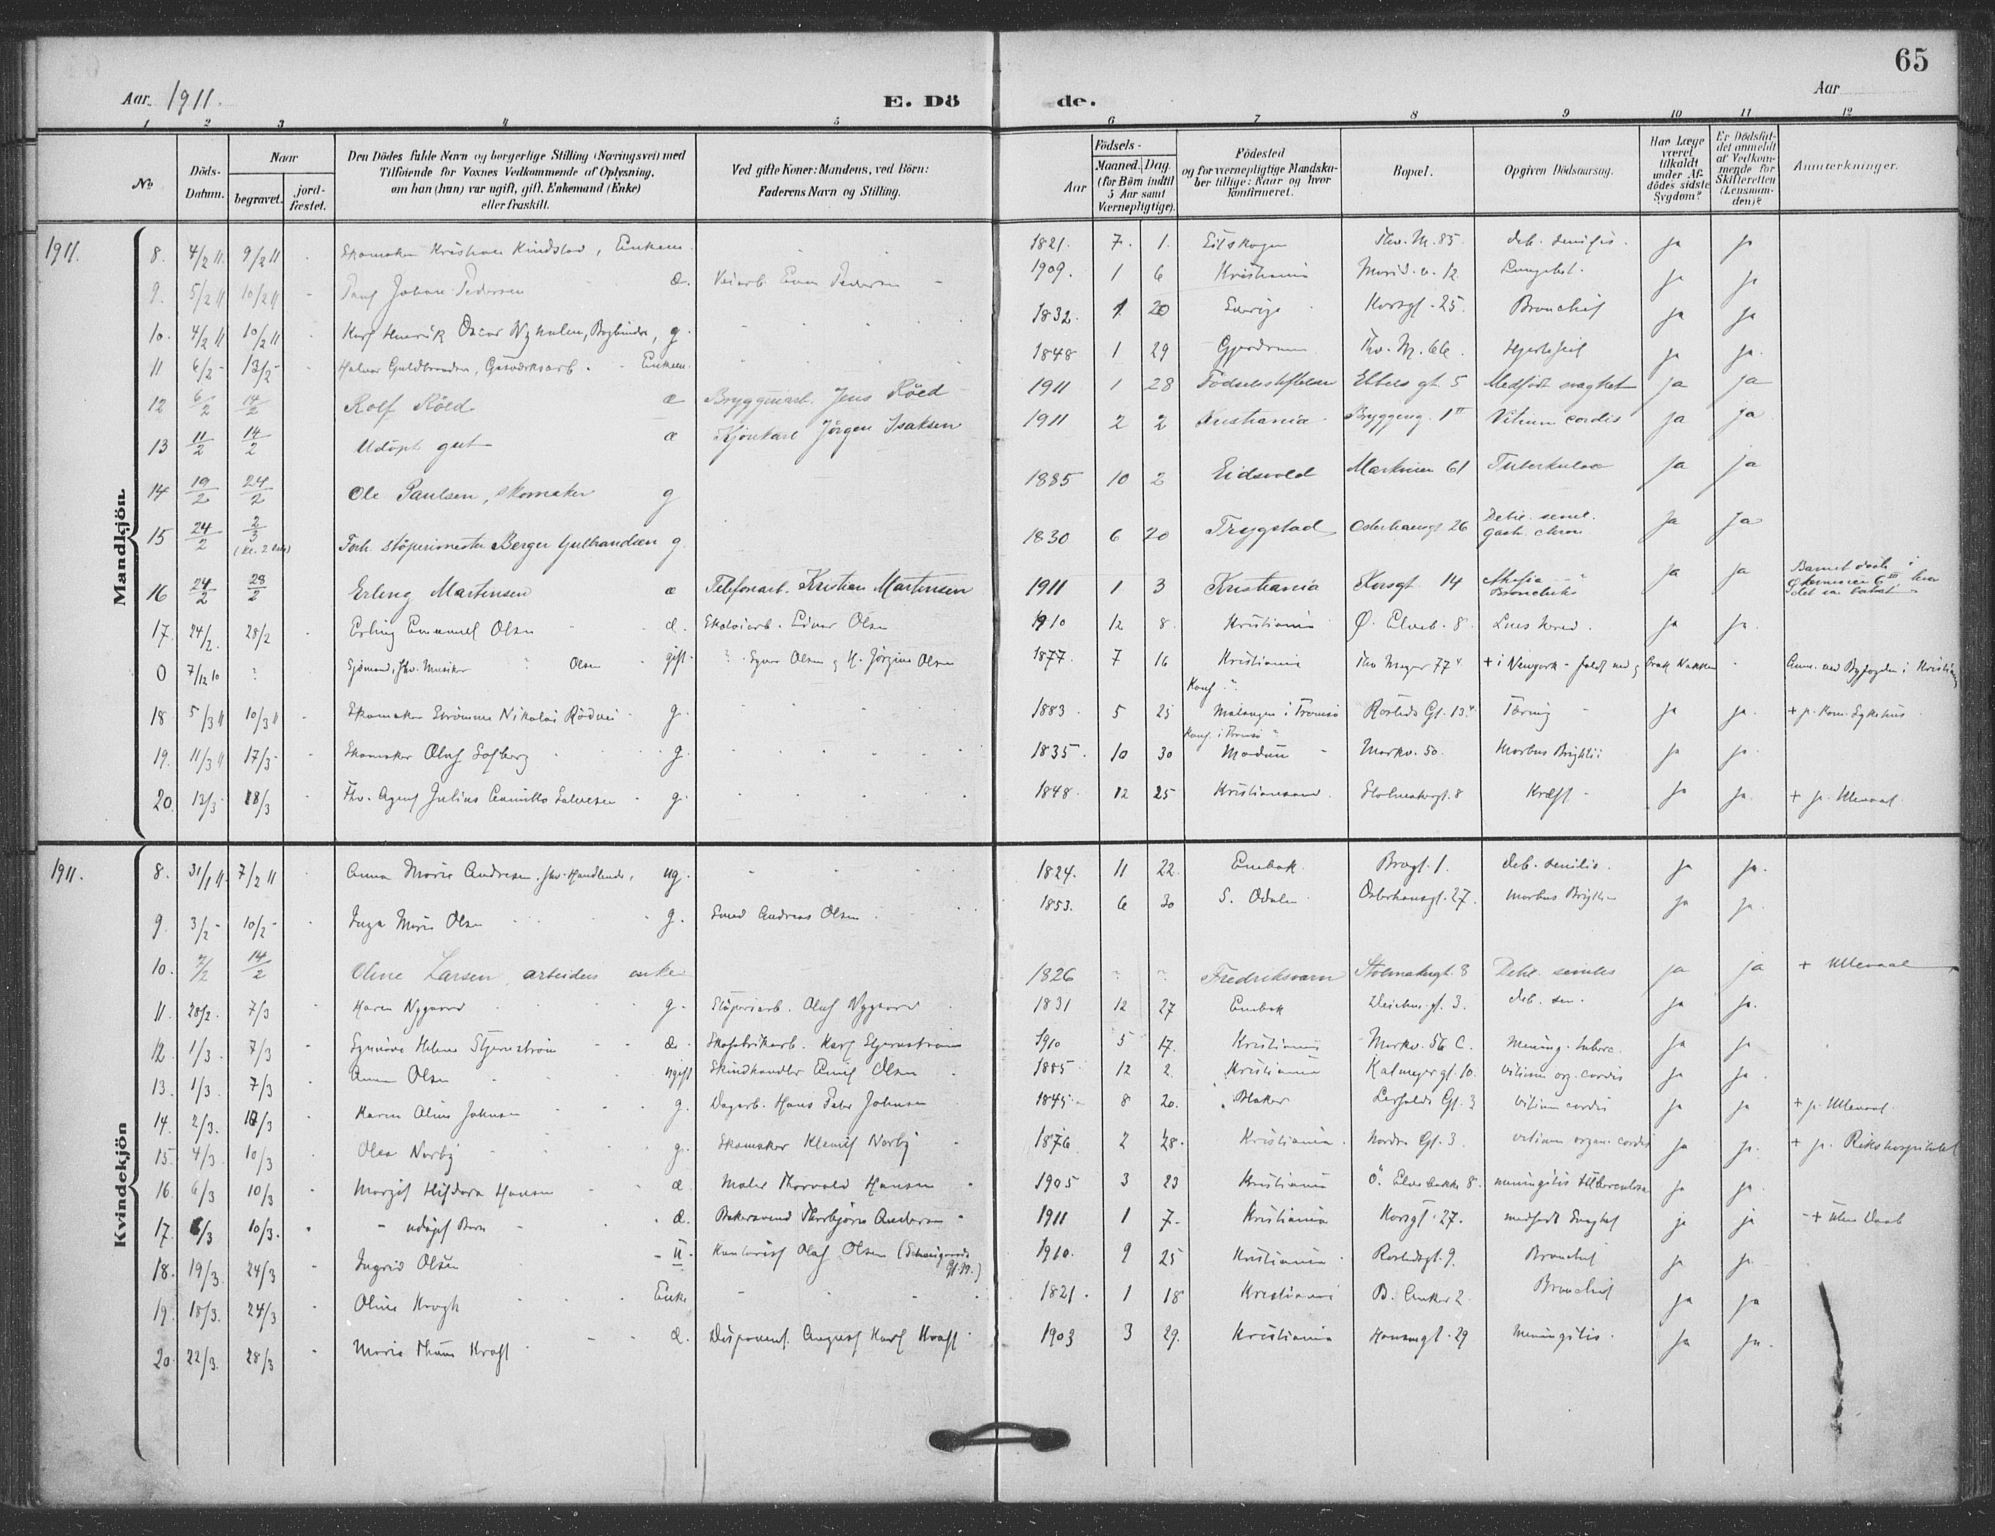 65
Aar. 1911.
E. Dö
de.
Aar
1 2 3 4 5 6 7 8 9 10 11 12
No.
Döds-Datum.
Naar
begravet.
jord-fæstet.
Den Dödes fulde Navn og borgerlige Stilling (Næringsvei) med
Tilföiende for Voxnes Vedkommende af Oplysning,
om han (hun) var ugift, gift, Enkemand (Enke)
eller fraskilt.
Ved gifte Koner: Mandens, ved Börn:
Faderens Navn og Stilling.
Födsels-
Aar
Maaned. Dag.
(for Börn indtil
5 Aar samt
Værnepligtige).
Födested
og for værnepligtige Mandska-
ber tillige: Naar og hvor
konfirmeret.
Bopæl.
Opgiven Dödsaarsag.
Har Læge
været
tilkaldt
under Af-
dödes sidste
Sygdom?
Er Dödsfal-
det anmeldt
af Vedkom-
mende for
Skifteretten
(Lensman-
den)?
Anmærkninger.
Mandkjön
1911. 8. 4/2 11 9/2 11 Skomaker Kristian Kindstad, Enkem. 1821. 7. 1. Eidskogen Thv. M. 85. deb. senilis. ja ja
9. 5/2 11 10/2 11 Johan Pedersen æ. Veiarb. Even Pedersen 1909. 1 6 Kristiania Marid. v. 12 Lungebet. ja ja
10. 4/2 11 10/2 11 Karl Henrik Oscar Nyholm, Bogbinder, g. 1832. 1 20 Sverige Korsgt. 25. Bronchit ja ja
11 6/2 13/2 Halvor Guldbrandsen, Gasværksarb. Enkem. 1848 1 29 Gjerdrum Thv. M. 66. Hjertefeil ja ja
12 6/2 14/2 Rolf Röed æ Bryggeriarb. Jens Röed 1911 1 28 Födselsstiftelsen Ebbels gt 5 Medfödt svaghet ja ja
13 11/2 14/2 Udöpt gut æ Kjörekarl Jörgen Isaksen 1911 2 2 Kristiania Byggeng. 1 II Vitium cordis ja ja
14 19/2 24/2 Ole Paulsen, skomaker g 1885 10 2 Eidsvold Markveien 61 Tuberkulose ja ja
15 24/2 2/3 (kl. 2) Forh. stöperimester Berger Gulbrandsen g. 1830 6 20 Trygstad Osterhausgt 26 Debil. senil. gastr. chron ja ja
16 24/2 28/2 Erling Martinsen æ Telefonarb. Kristian Martinsen 1911 1 3 Kristiania Korsgt 14 Bronchitis ja ja Barnet döde i hvor
17. 24/2. 28/2 Erling Emanuel Olsen æ. Skotöiarb. Einar Olsen 1910 12 8. Kristiania Ø. Elveb. 8. Lues hered. ja ja
0 7/12 10 ? Sjömand, fhv. Musiker Olsen gift Olsen g. H. Jörgine Olsen 1877 7 16 Kristiania Thv Meyer 77 + i Newyork - faldt ned g brak Nakken Anm. ved Byfogden i Kristiania
Konf.
18 5/3 11 10/3 11 Skomaker Nikolai Rödvei g. 1883 5 25 Malangen i Tromsö Rosteds Gt. 13. Tæring ja ja + p. Kom. Sykehus
Konf. i Tromsö
19. 11/3 11 17/3 Skomaker Olaf Solberg g. 1835. 10 30 Modum Markv. 50. Morbus Brightii ja ja
20. 12/3 18/3 Fhv. Agent Julius Camillo Salvesen g. 1848. 12 25 Kristiansand. Stolmakergt. 8 Kræft ja ja + p. Ullevaal.
Kvindekjön
1911. 8. 31/1 11 7/2 11 Anna Marie Andresen. fhv. Handlende, ug. 1824. 11 22. Enebak Brogt. 1. deb. senilis. ja ja.
9. 3/2 10/2 Inga Marie Olsen g. Smed Andreas Olsen 1853. 6 30 S. Odalen Osterhausgt. 27. morbus Brightii ja ja.
10. 7/2 14/2 Oline Larsen, arbeiders enke 1826 Fredriksværn Stolmakergt. 8 Debil. senilis ja ja + Ullevaal
11. 28/2. 7/3 Karen Nygaard g. Stöperiarb. Olaf Nygaard 1831 12 27 Enebak Deichm. gt. 3. deb. sen. ja ja.
12 1/3. 7/3 Synnöve Helene Stjernström æ. Skofabrikarb. Karl Stjernström 1910 5 17. Kristiania Markv. 56 C. mening. tuberc. ja
13. 1/3. 7/3 Anna Olsen ugift Skindhandler Emil Olsen 1885 12 2. Kristiania Kalmeyer gt. 10. vitium org. cordis ja ja
14. 2/3. 10/3 Karen Aline Johnsen g. Dagarb. Hans Peter Johnsen 1845 8 20. Blaker Gt. 3 vitium cordis ja ja + p. Ullevaal.
15. 4/3 10/3 Olea Norby g. Skomaker Norby 1876 2 28. Kristiania. Nordre Gt. 3. vitium organ. cordis ja ja. + p. Rikshospitalet
16. 6/3 10/3 Margit Hildora Hansen æ. Maler Thorvald Hansen 1905 3 23 Kristiania Ö. Elvebakke 8. meningitis tuberculosa ja ja.
17. 6/3 10/3. udöpt Barn æ. Bakersvend Thorbjörn Andersen 1911 1 7. Kristiania Korsgt. 27. medfödt Svaghet ja ja + uden Daab
18. 19/3. 24/3 Ingrid Olsen u. Kontorist Olaf Olsen (Schweigaards Gt. ) 1910. 9 25 Kristiania Rostedsgt. 9. Bronchit ja ja
19. 18/3. 24/3 Oline Krogh Enke 1821. 1 18 Kristiania B. Anker 2. Bronchit ja ja
20. 22/3. 28/3 Marie Kraft æ. Disponent. August Karl Kraft 1903 3 29. Kristiania Hausmgt. 29 Meningitis. ja ja.